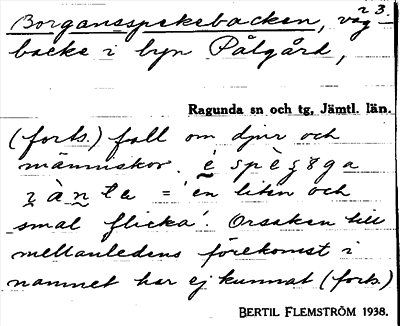 23.
Borgansspekebacken, väg-
backe i byn Pålgård,
Ragunda sn och tg, Jämtl. län.
(forts.) fall om djur och
människor. é spèʒga
= 'en liten och
smal flicka'. Orsaken till
mellanledens förekomst i
namnet har ej kunnat (forts.)
BERTIL FLEMSTRÖM 1938.